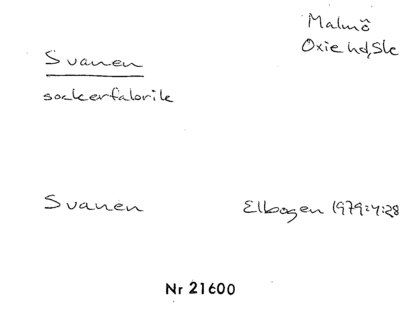 Malmö
Oxie hd, Sk
Svanen
sockerfabrik
Svanen
Elbogen 1979:4:28
Nr 21600